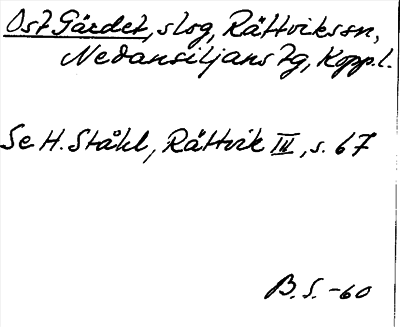 Ost Gärdet, slog, Rättvikssn,
Nedansiljans tg, Kopp.l.
Se H. Ståhl, Rättvik III, s. 67
B.S. -60